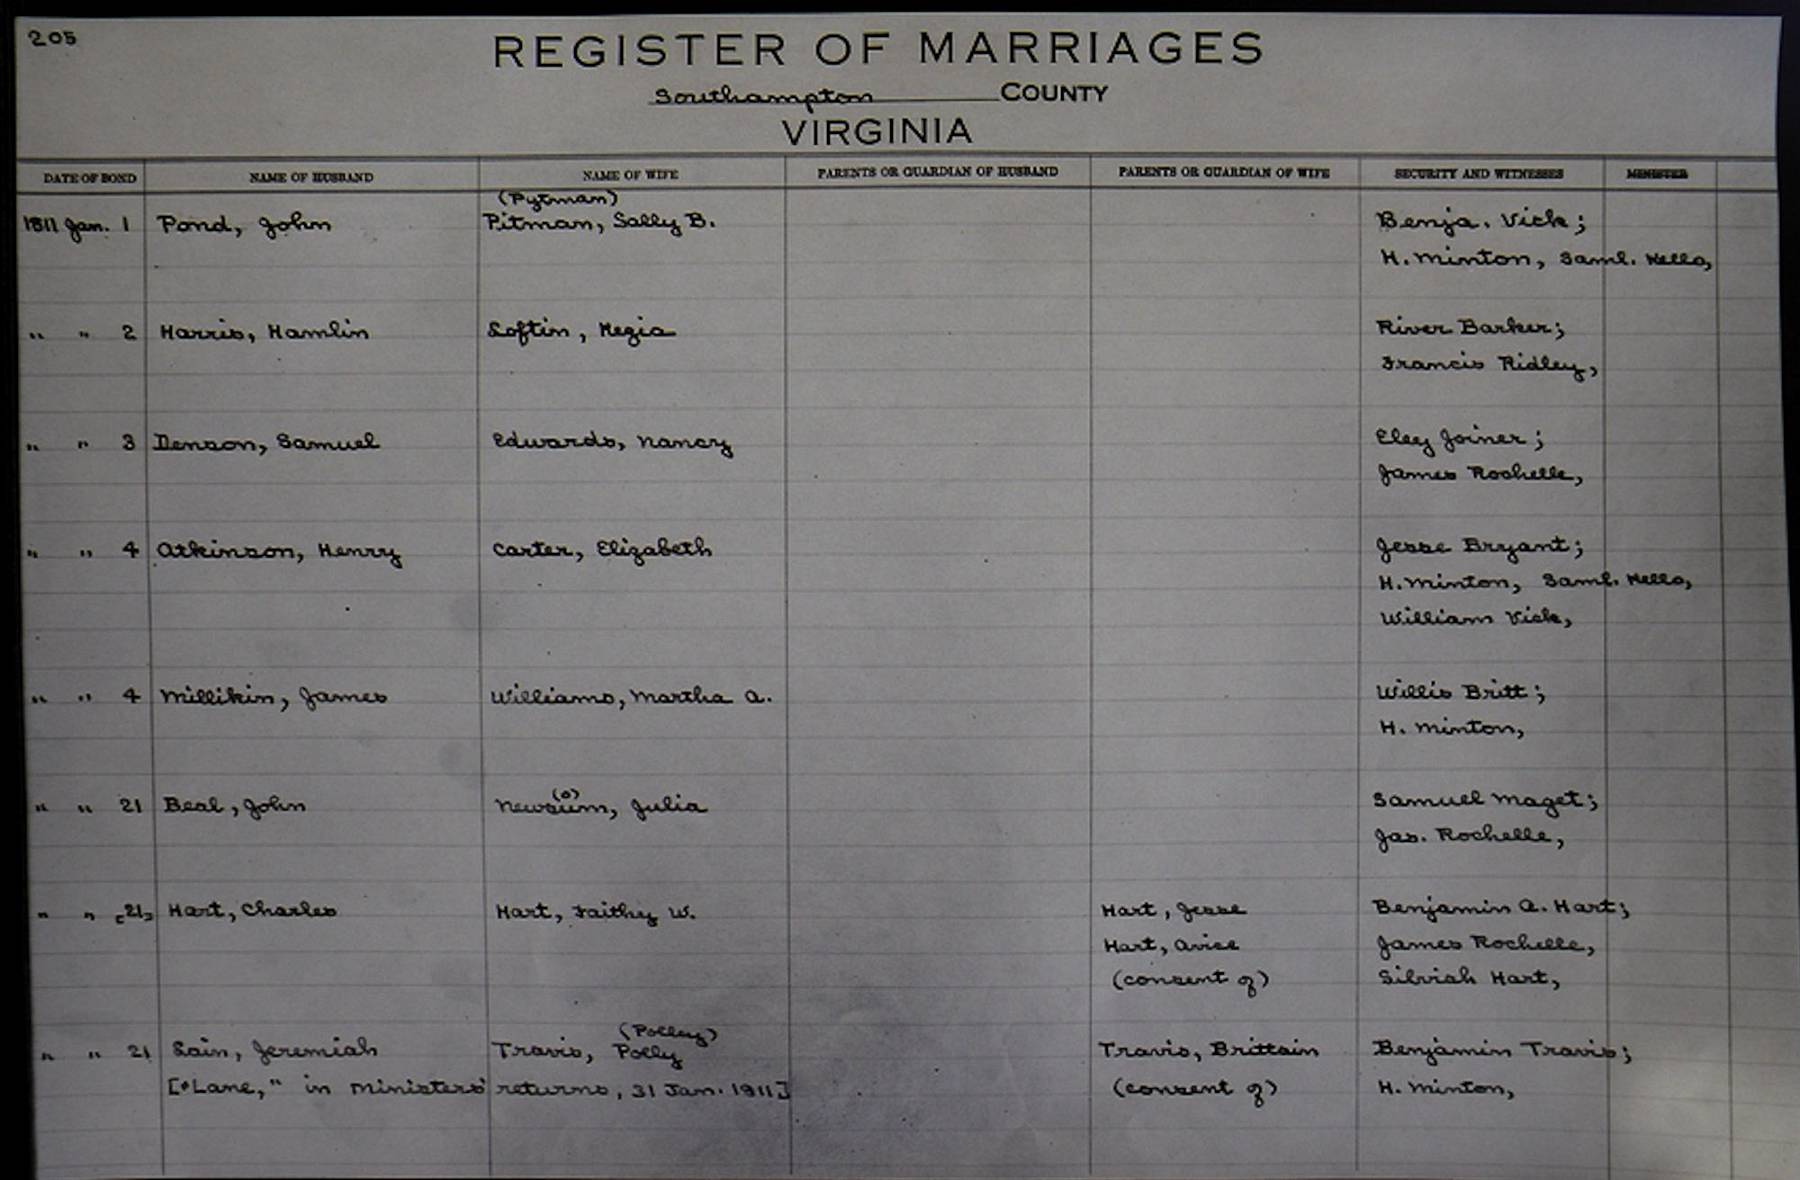 205
REGISTER OF MARRIAGES
Southampton COUNTY
VIRGINIA
DATE OF BOND NAME OF HUSBAND NAME OF WIFE PARENTS OR GUARDIAN OF HUSBAND PARENTS OR GUARDIAN OF WIFE SECURITY AND WITNESSES MINISTER
(Pytman)
1811 Jan. 1 Pond, John Pitman, Sally B. Benja. Vick;
H. Minton, Saml. Kello,
" " 2 Harris, Hamlin Loftin, Kezia River Barker;
Francis Ridley,
" " 3 Denson, Samuel Edwards, Nancy Eley Joiner;
James Rochelle,
" " 4 Atkinson, Henry Carter, Elizabeth Jesse Bryant;
H. Minton, Saml. Kello,
William Vick,
" " 4 Millikin, James Williams, Martha A. Willis Britt;
H. Minton,
(o)
" " 21 Beal, John Newsum, Julia Samuel Maget;
Jas. Rochelle,
" " [21] Hart, Charles Hart, Faithy W. Hart, Jesse Benjamin A. Hart;
Hart, Avice James Rochelle,
(consent of) Silviah Hart,
(Polley)
" " 21 Lain, Jeremiah Travis, Polly Travis, Brittain Benjamin Travis;
["Lane," in ministers' returns, 31 Jan. 1811] (consent of) H. Minton,